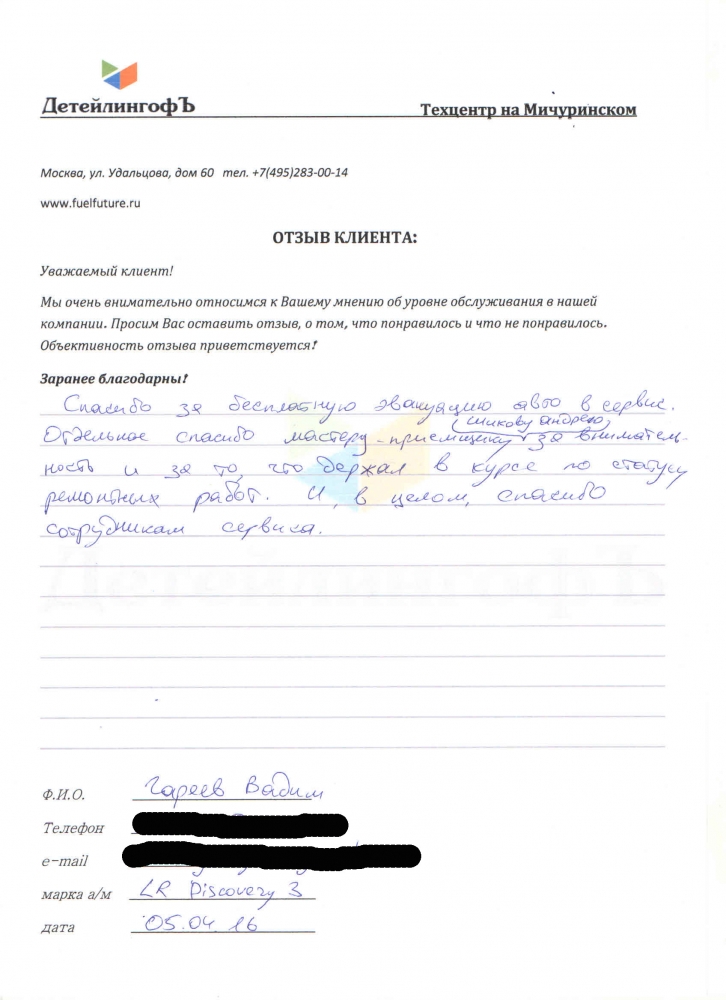 ДетейлингофЪ
Техцентр на Мичуринском
Москва, ул. Удальцова, дом 60 тел. +7(495)283-00-14
www.fuelfuture.ru
ОТЗЫВ КЛИЕНТА:
Уважаемый клиент!
Мы очень внимательно относимся к Вашему мнению об уровне обслуживания в нашей
компании. Просим Вас оставить отзыв, о том, что понравилось и что не понравилось.
Объективность отзыва приветствуется!
Заранее благодарны!
Спасибо за бесплатную эвакуацию авто в сервис.
Андрею
Отдельное спасибо мастеру-приемщику за вниматель-
ность и за то, что держал в курсе по статусу
ремонтных работ. И, в целом, спасибо
сотрудникам сервиса.
Ф.И.О. Гареев Вадим
Телефон
e-mail
марка а/м LR Discovery 3
дата 05.04 16